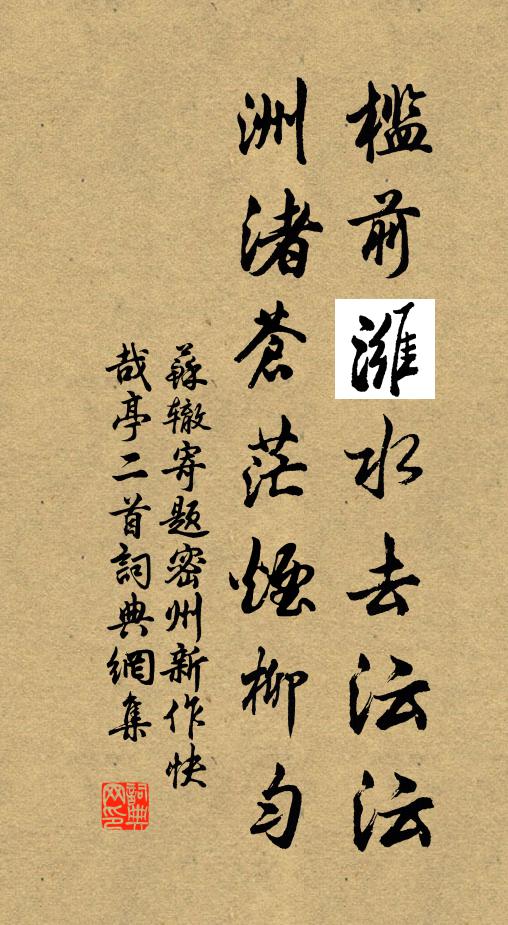 槛前潍水去沄沄
洲渚蒼茫煙柳匀
蘇辙寄題密州新作快
哉亭二首詞典網集
詞典网印